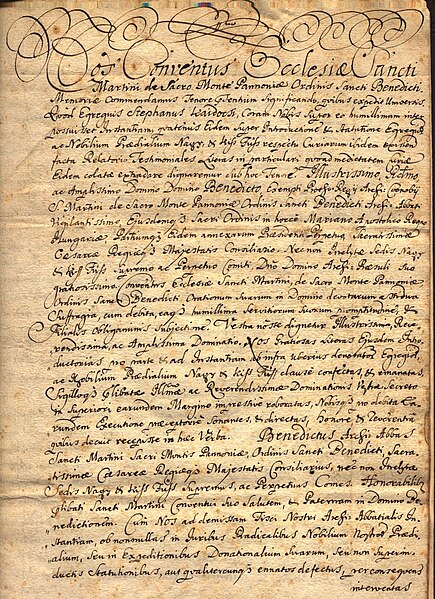 Nos Conventus Ecclesiæ Sancti
Martini de Sacro Monte Pannoniæ Ordinis Sancti Benedicti,
Memoriæ Commendamus Tenore Præsentium Significando, quibus expedit Universis,
Quod Egregius Stephanus Coram Nobis humillimam inter
posuisset Instantiam, quatenus Eidem super Introductione & Statutione Egregiorum
ac Nobilium Prædialium Nagy & Kiss Füss respectu Curiarum ibidem
facta Relatorio Testimoniales Literas in particulari quoad medietatem
Eidem extradare dignaremur sub hoc Tenore. Illustrissimo,
ac Amplissimo Domino Domino Benedicto,
S. Martini de Sacro Monte Pannoniæ Ordinis Sancti Benedicti Abbati
Vigilantissimo, Ejusdemque Sacri Ordinis in hocce Mariano Apostolico Regno
Hungariæ, Partiumque Eidem annexarum Præsidenti Perpetuo, Sacratissimæ
Cæsareæ Regiæque Majestatis Consiliario, Necnon Inclytæ Sedis Nagy
& Kiss Füss Supremo ac Perpetuo Comiti, Domino
gratiosissimo. Conventus Ecclesiæ Sancti Martini, de Sacro Monte Pannoniæ
Ordinis Sancti Benedicti, Orationum suarum in Domino devotarum
Suffragia, cum debita, humillima Servitiorum suorum promptitudine, &
Filialis Obligaminis Subjectione. Vestra nosse dignetur Illustrissima, Reve,
rendissima, ac Amplissima Dominatio, Nos Gratiosas Literas Ejusdem Intro,
ductorias, pro parte & ad Instantiam ab infra uberius denotatorum Egregiorum,
ac Nobilium Prædialium Nagy & Kiss Füss clause confectas, & emanatas,
Sigilloque ac Reverendissimæ Dominationis Vestræ Secreto
in Superiori earundem Margine impressive roboratas, Nobisque pro debita Ea,
rundem Executione præceptorie sonantes, & directas, honore & reverentia
qualis decuit recepisse in hæc Verba. Benedictus Abbas
Sancti Martini Sacri Montis Pannoniæ, Ordinis Sancti Benedicti, Sacra,
tissimæ Cæsareæ Regiæque Majestatis Consiliarius, nec non Inclytæ
Sedis Nagy & Kiss Füss Supremus, ac Perpetuus Comes. Honorabili
Sancti Martini Conventui Suo Salutem, & Paternam in Domino Be,
nedictionem. Cum Nos ad demissam Fisci Nostri Abbatialis In,
stantiam, ob nonnullas in Juribus Radicalibus Nobilium Nostrorum Prædi,
alium, seu in Expeditionibus Donationalium suarum, seu non superin,
ductis Statutionibus, aut qualitercunque emanatos defectus, per consequens
interventas